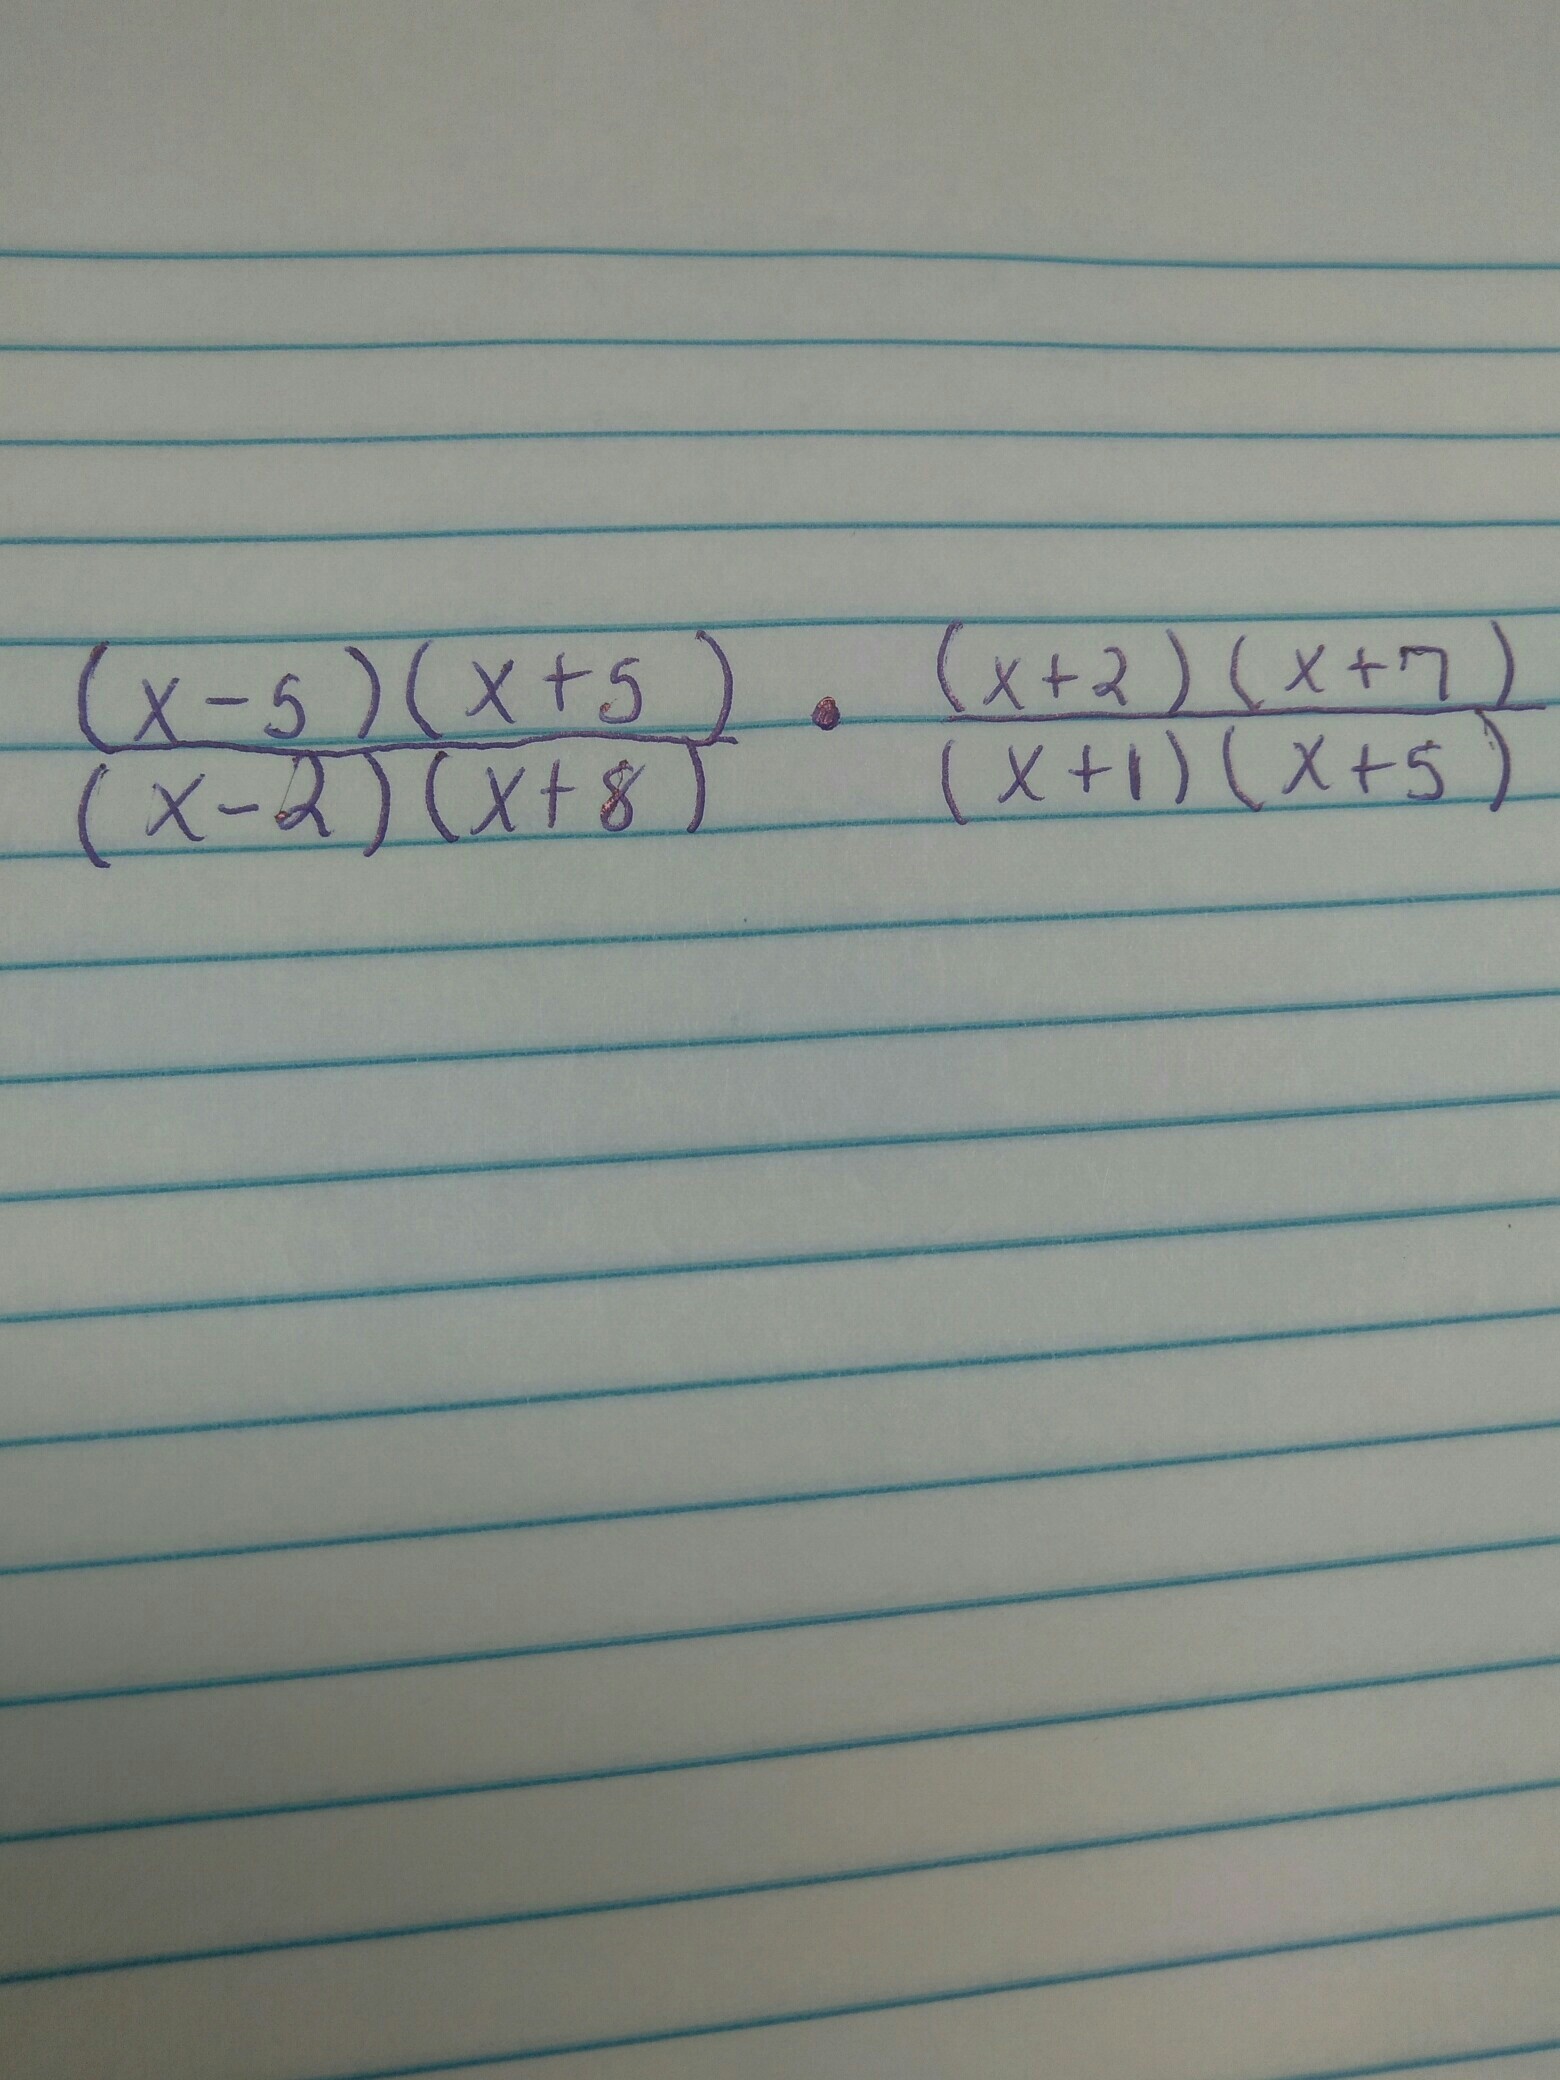 (x-5)(x+5) · (x+2)(x+7)
(x-2)(x+8) (x+1)(x+5)